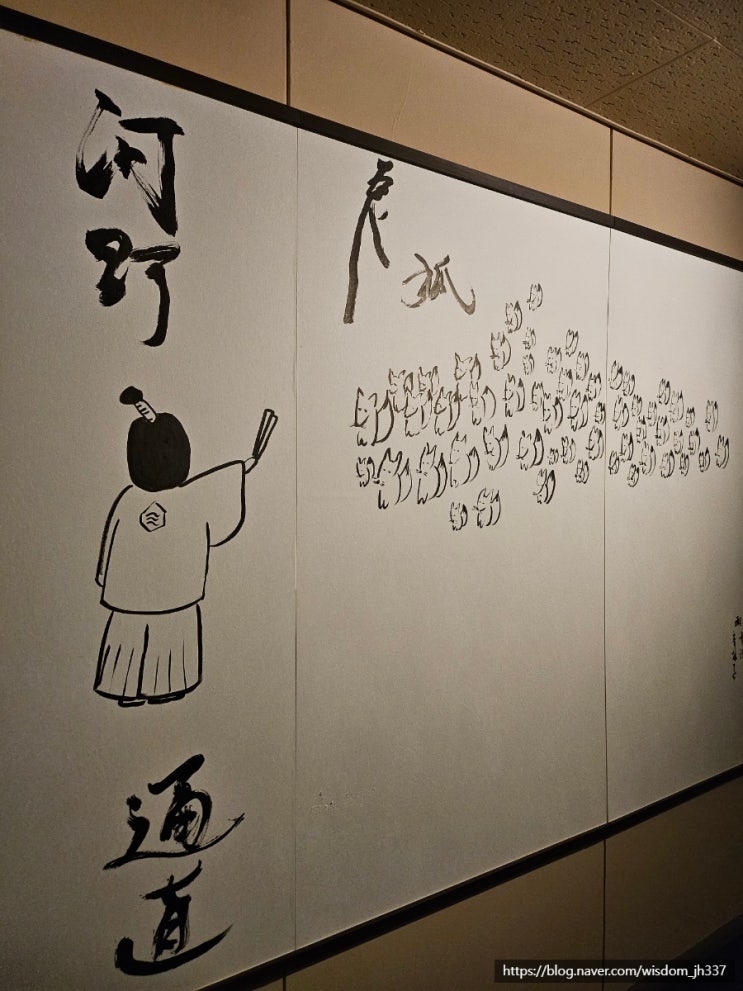 河野
通直
狐
https://blog.naver.com/wisdom_jh337